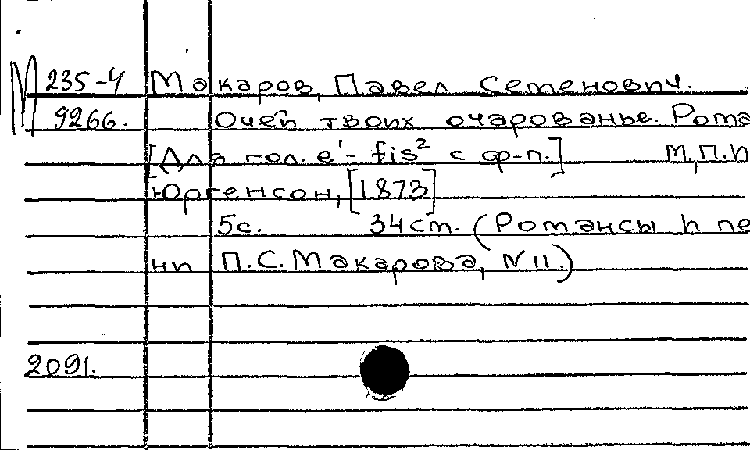 М 235-4 Макаров, Павел Семенович.
9266. Очей твоих очарованье. Рома
[Для гол. e¹- fis² с ф-п.] М., П.И
Юргенсон, [1873]
5с. 34см. (Романсы и пе
ни П.С. Макарова, №11.)
2091.